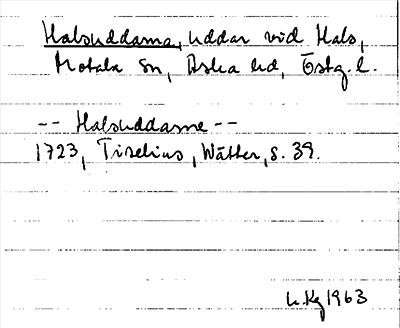 Halsuddarna, uddar vid Hals,
Motala sn, Aska hd, Östg. l.
-- Halsuddarne --
1723, Tiselius, Wätter, s. 39.
1963